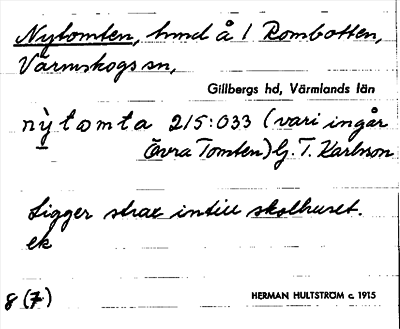 Nytomten, hmd å 1 Rombotten,
Värmskogs sn,
Gillbergs hd, Värmlands län
nỳtomta 215:033 (vari ingår
Övra Tomten) G. T. Karlsson
Ligger strax intill skolhuset.
ek
8 (7)
HERMAN HULTSTRÖM c. 1915